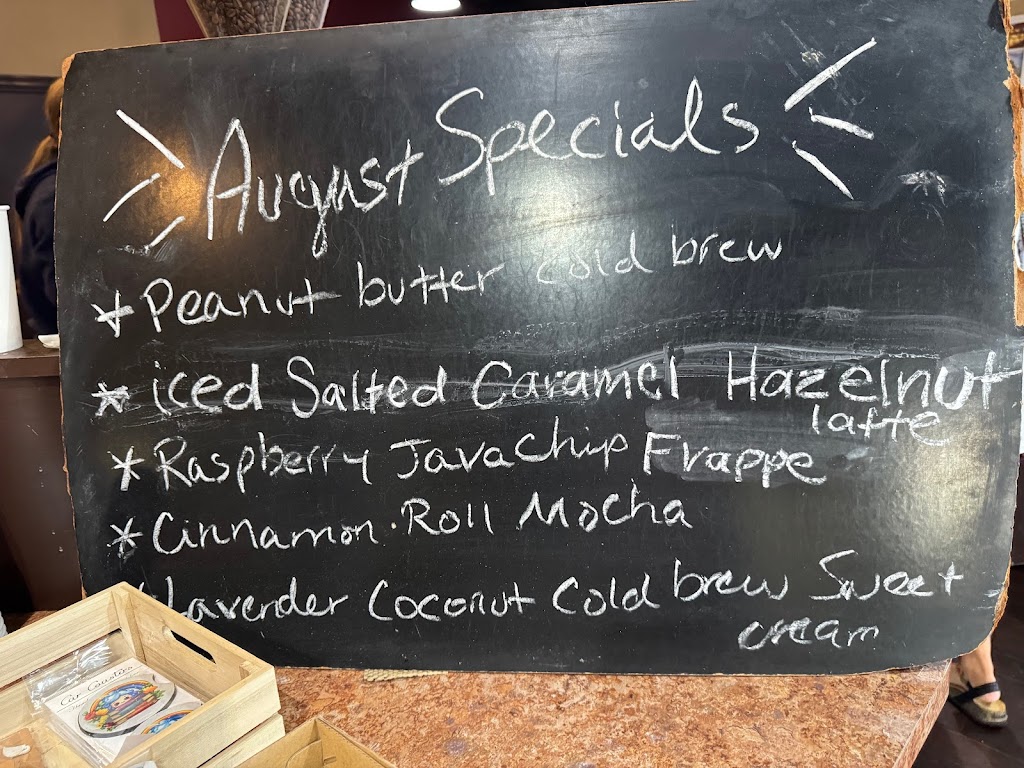 August Specials
* Peanut butter cold brew
* iced Salted Caramel Hazelnut
latte
* Raspberry Java Chip Frappe
* Cinnamon Roll Mocha
* Lavender Coconut Cold brew Sweet
cream
Car Coasters